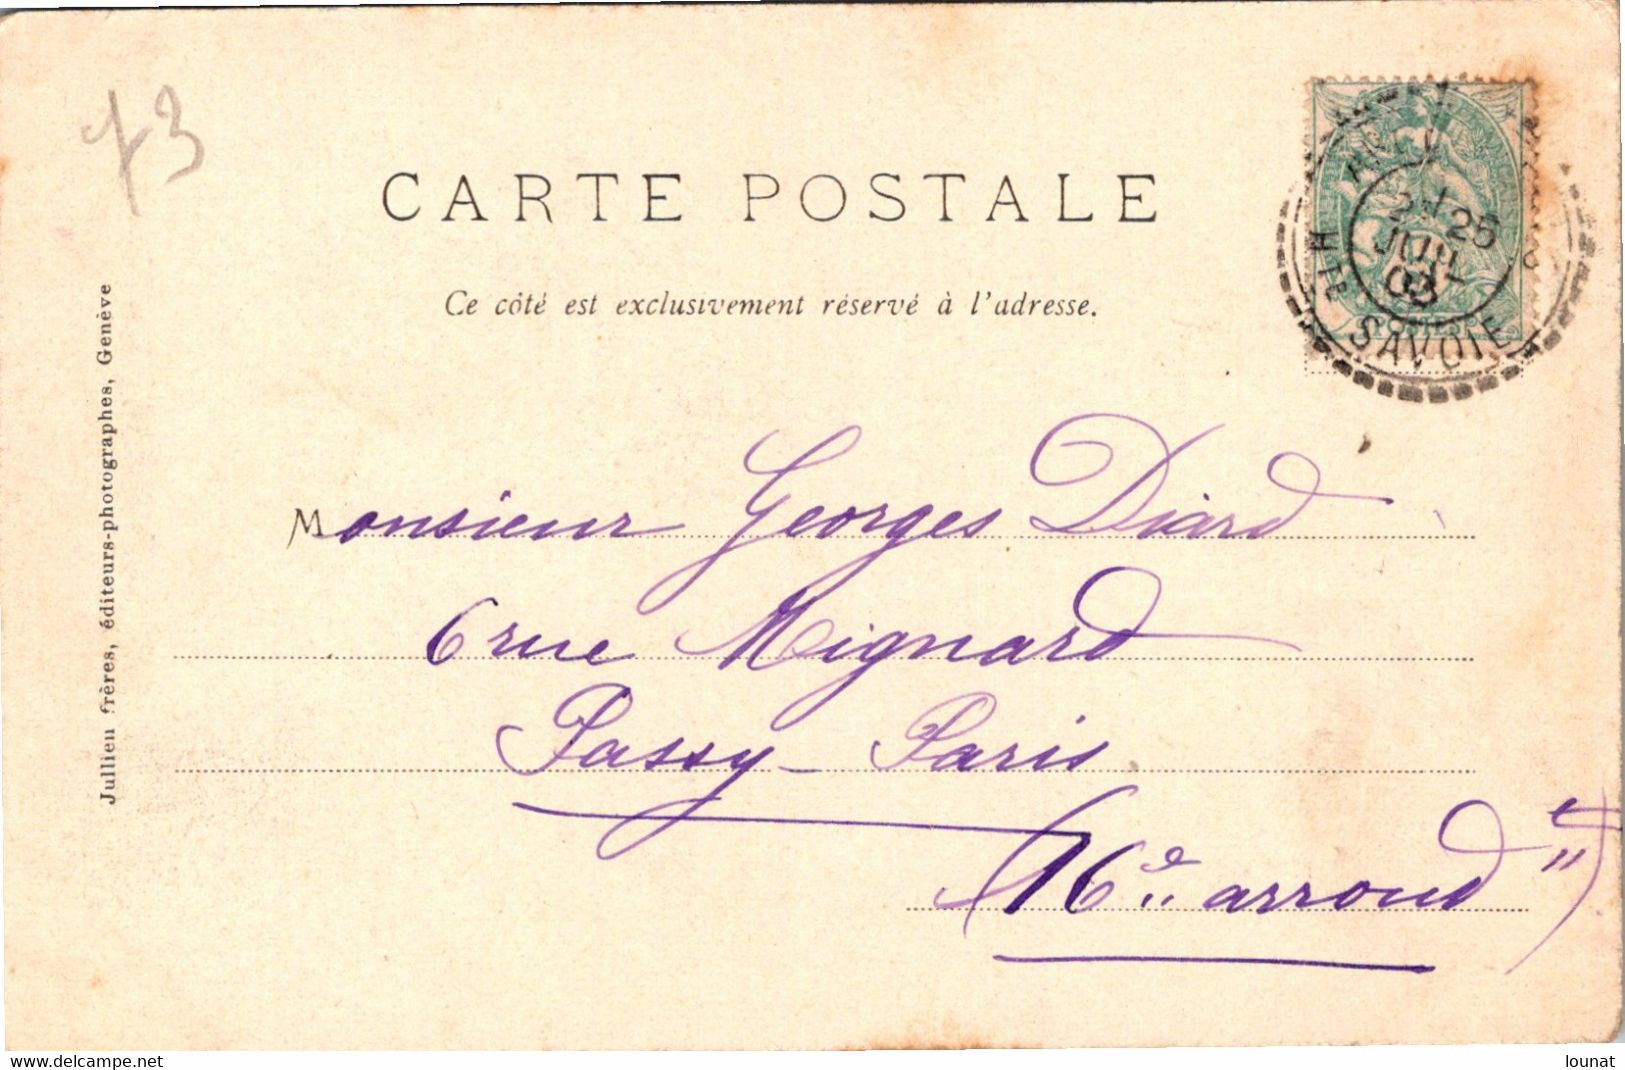 73
CARTE POSTALE
Ce côté est exclusivement réservé à l'adresse.
25
JUIL
03
HTE SAVOIE
POSTES
Jullien frères, éditeurs-photographes, Genève
Monsieur Georges Diard
6 rue Mignard
Passy - Paris
(16e arrond t)
www.delcampe.net
lounat